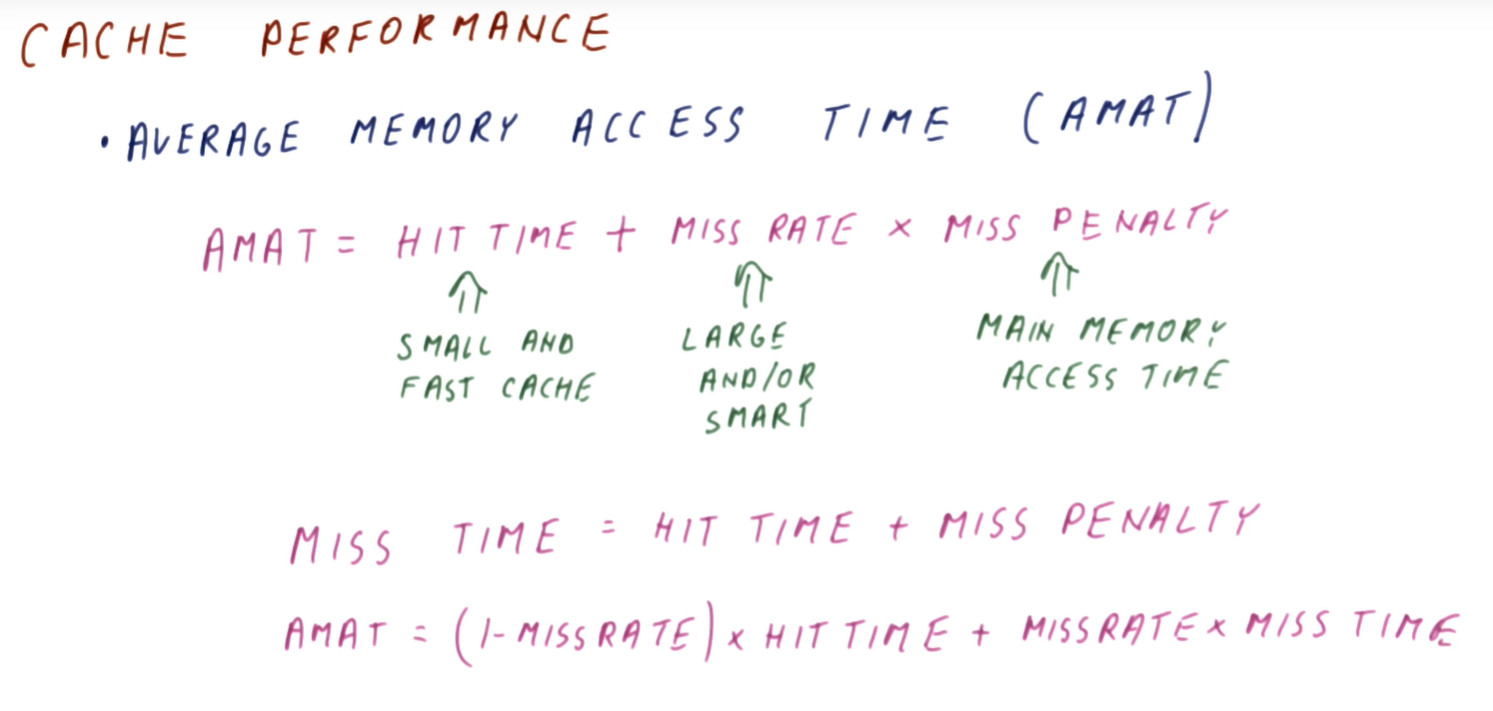 CACHE PERFORMANCE
• AVERAGE MEMORY ACCESS TIME (AMAT)
AMAT = HIT TIME + MISS RATE × MISS PENALTY
SMALL AND
FAST CACHE
LARGE
AND/OR
SMART
MAIN MEMORY
ACCESS TIME
MISS TIME = HIT TIME + MISS PENALTY
AMAT = (1-MISS RATE) × HIT TIME + MISS RATE × MISS TIME